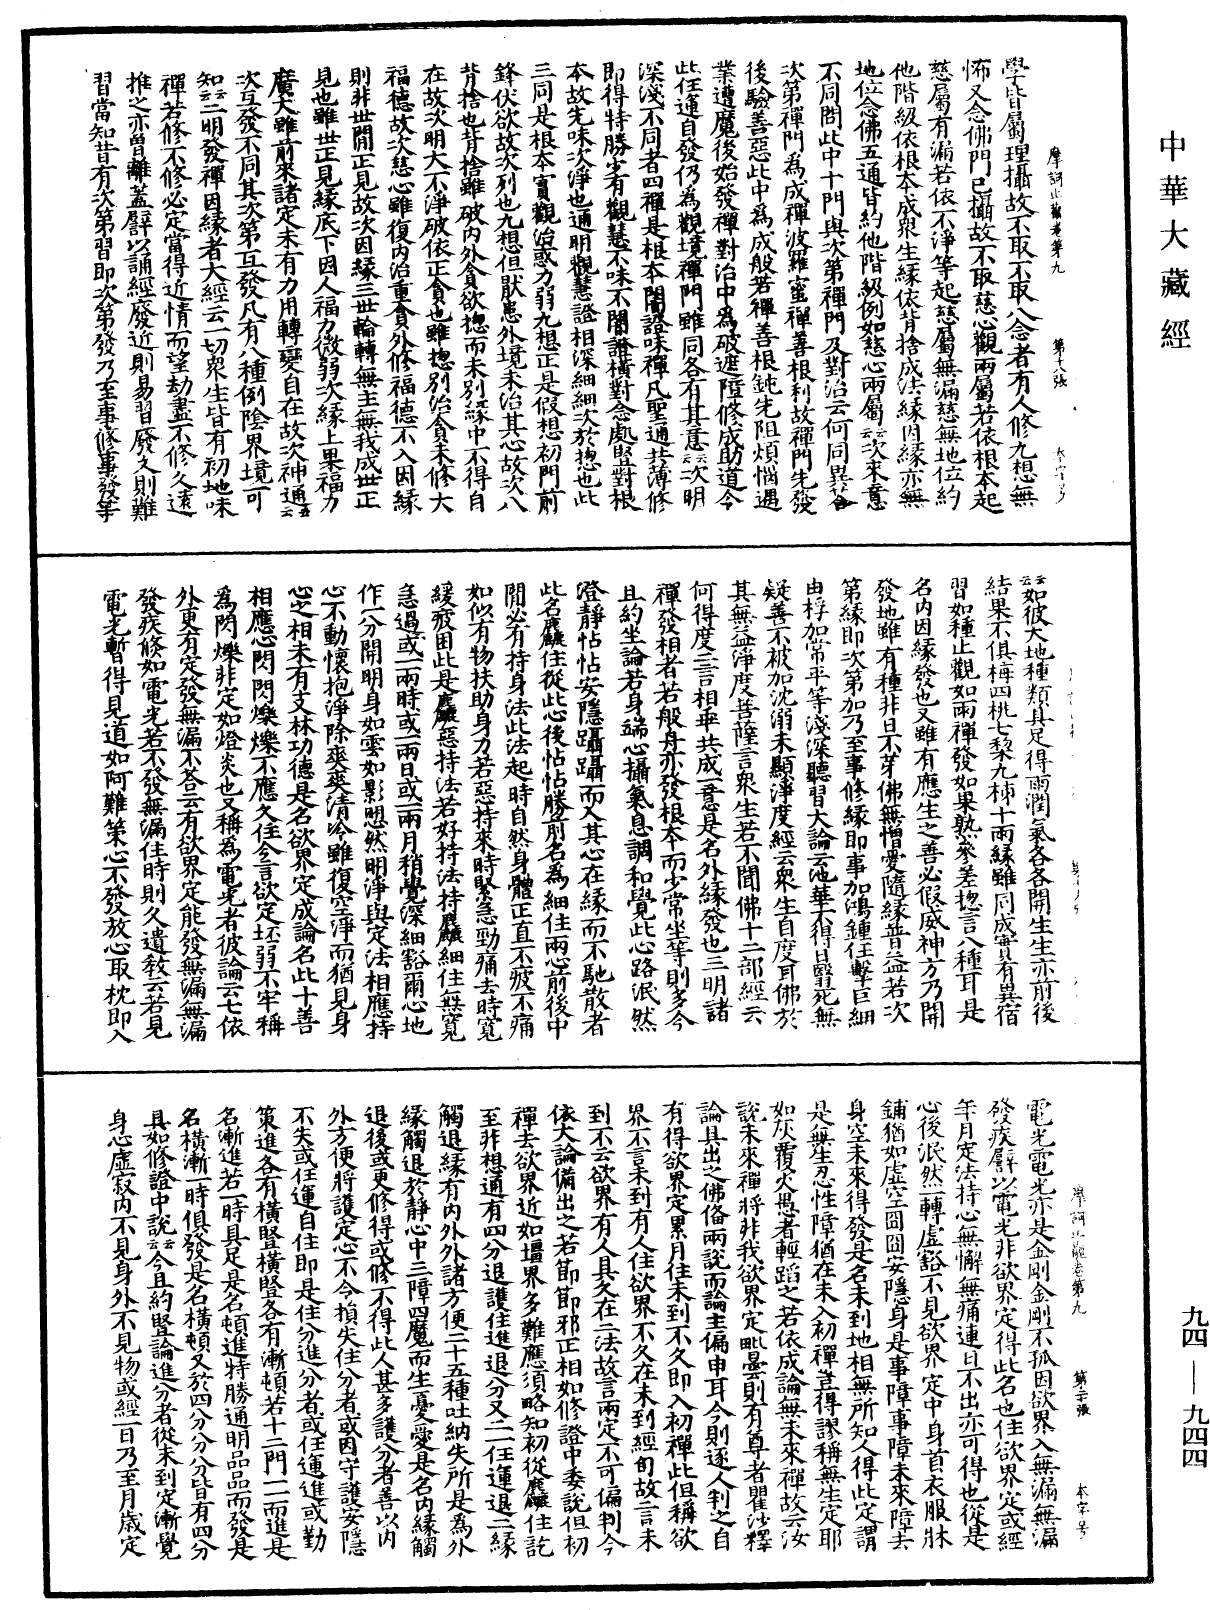 中華大藏經
摩訶止觀卷第九　第十八張　本字号
學皆屬理攝故不取不取八念者有人修九想無
怖又念佛門已攝故不取慈心觀兩屬若依根本起
慈屬有漏若依不淨等起慈屬無漏慈無地位約
他階級依根本成衆生緣依背捨成法緣因緣亦無
地位念佛五通皆約他階級例如慈心兩屬云云次來意
不同問此中十門與次第禪門及對治云何同異答
次第禪門為成禪波羅蜜禪善根利故禪門先發
後驗善惡此中為成般若禪善根鈍先阻煩惱遇
業遭魔後始發禪對治中為破遮障修成助道今
此任運自發仍為觀境禪門雖同各有其意云云次明
深淺不同者四禪是根本闇證味禪凡聖通共薄修
即得特勝少有觀慧不味不闇證橫對念處竪對根
本故先味次淨也通明觀慧證相深細細次於揔也此
三同是根本實觀治惑力弱九想正是假想初門前
鋒伏欲故次列也九想但猒患外境未治其心故次八
背捨也背捨雖破內外貪欲揔而未別緣中不得自
在故次明大不淨破依正貪也雖揔別治貪未修大
福德故次慈心雖復內治重貪外修福德不入因緣
則非世間正見故次因緣三世輪轉無主無我成世正
見也雖世正見緣底下因人福力微弱次緣上果福力
廣大雖前來諸定未有力用轉變自在故次神通五云云
次互發不同其次第互發凡有八種例陰界境可
知云云二明發禪因緣者大經云一切衆生皆有初地味
禪若修不修必定當得近情而望劫盡不修久遠
推之亦曽離蓋譬以誦經廢近則易習廢久則難
習當知昔有次第習即次第發乃至事修事發等
云云如彼大地種類具足得雨潤氣各各開生生亦前後
結果不俱梅四桃七梨九柿十雨緣雖同成實有異宿
習如種止觀如雨禪發如果熟參差揔言八種耳是
名內因緣發也又雖有應生之善必假威神方乃開
發地雖有種非日不芽佛無憎愛隨緣普益若次
第緣即次第加乃至事修緣即事加鴻鍾任擊巨細
由桴加常平等淺深聽習大論云池華不得日翳死無
疑善不被加沈溺未顯淨度經云衆生自度耳佛於
其無益淨度菩薩言衆生若不聞佛十二部經云
何得度二言相乖共成一意是名外緣發也三明諸
禪發相者若般舟亦發根本而少常坐等則多今
且約坐論若身端心攝氣息調和覺此心路泯然
澄靜怗怗安隱躡躡而入其心在緣而不馳散者
此名麤住從此心後怗怗勝前名為細住兩心前後中
間必有持身法此法起時自然身體正直不疲不痛
如似有物扶助身力若惡持來時緊急勁痛去時寬
緩疲困此是麤惡持法若好持法持麤細住無寬
急過或一兩時或一兩日或一兩月稍覺深細豁爾心地
作一分開明身如雲如影煚然明淨與定法相應持
心不動懷抱淨除爽爽清泠雖復空淨而猶見身
心之相未有支林功德是名欲界定成論名此十善
相應心閃閃爍爍不應久住今言欲定坯弱不牢稱
為閃爍非定如燈炎也又稱為電光者彼論云七依
外更有定發無漏不答云有欲界定能發無漏無漏
發疾倏如電光若不發無漏住時則久遺敎云若見
電光暫得見道如阿難策心不發放心取枕即入
摩訶止觀卷第九　第二張　本字号
電光電光亦是金剛金剛不孤因欲界入無漏無漏
發疾譬以電光非欲界定得此名也住欲界定或經
年月定法持心無懈無痛連日不出亦可得也從是
心後泯然一轉虛豁不見欲界定中身首衣服牀
鋪猶如虛空冏冏安隱身是事障事障未來障去
身空未來得發是名未到地相無所知人得此定謂
是無生忍性障猶在未入初禪豈得謬稱無生定耶
如灰覆火愚者輕蹈之若依成論無未來禪故云汝
說未來禪將非我欲界定毗曇則有尊者瞿沙釋
論具出之佛俻兩說而論主偏申耳今則逐人判之自
有得欲界定累月住未到不久即入初禪此但稱欲
界不言未到有人住欲界不久在未到經旬故言未
到不云欲界有人具久在二法故言兩定不可偏判今
依大論備出之若節節邪正相如修證中委說但初
禪去欲界近如壃界多難應須略知初從麤住訖
至非想通有四分退護住進退分又二一任運退二緣
觸退緣有內外外諸方便二十五種吐納失所是為外
緣觸退於靜心中三障四魔而生憂愛是名內緣觸
退後或更修得或修不得此人甚多護分者善以內
外方便將護定心不令損失住分者或因守護安隱
不失或任運自住即是住分進分者或任運進或勤
策進各有橫竪橫竪各有漸頓若十二門一一而進是
名漸進若一時具足是名頓進特勝通明品品而發是
名橫漸一時俱發是名橫頓又於四分分分皆有四分
具如修證中說云云今且約竪論進分者從未到定漸覺
身心虛寂內不見身外不見物或經一日乃至月歲定
九四—九四四